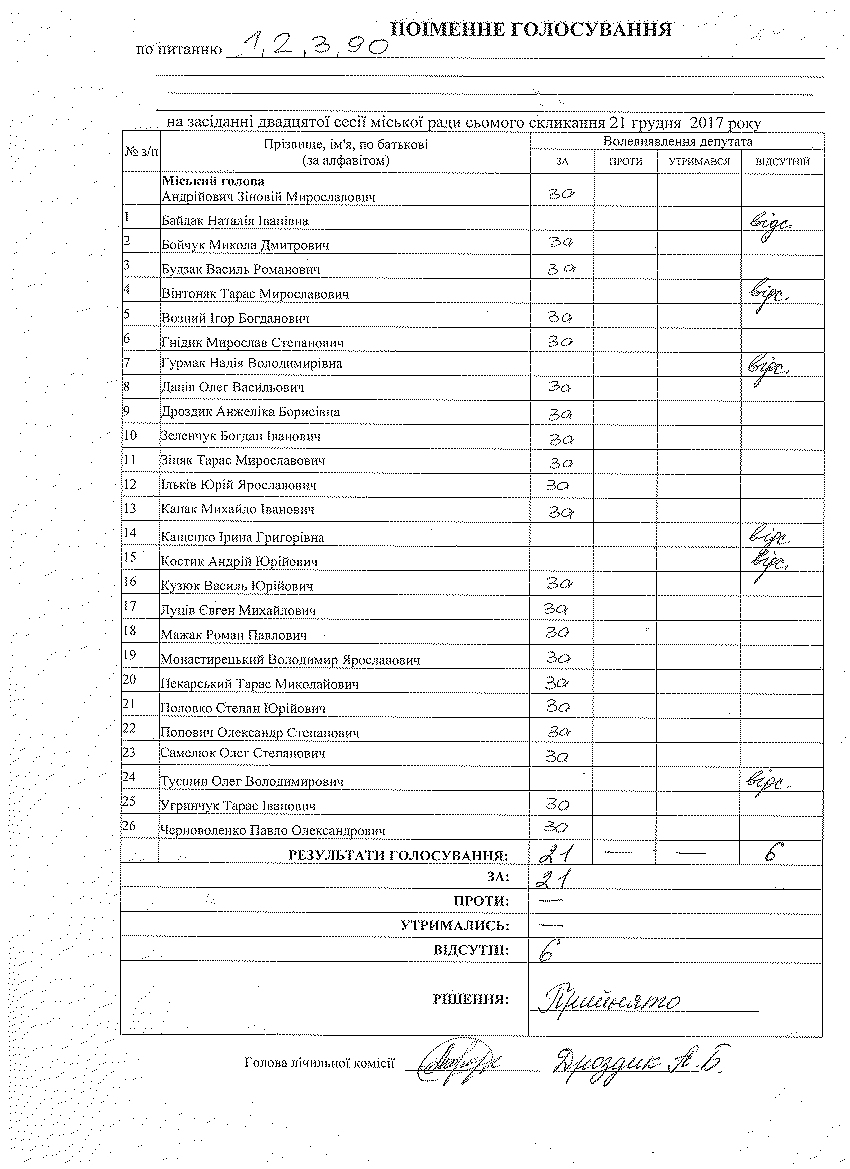 ПОІМЕННЕ ГОЛОСУВАННЯ
по питанню 1, 2, 3, 90
на засіданні двадцятої сесії міської ради сьомого скликання 21 грудня 2017 року
№ з/п Прізвище, ім'я, по батькові (за алфавітом) Волевиявлення депутата
ЗА ПРОТИ УТРИМАВСЯ ВІДСУТНІЙ
Міський голова
Андрійович Зіновій Мирославович за
1 Байдак Наталія Іванівна відс.
2 Бойчук Микола Дмитрович за
3 Будзак Василь Романович за
4 Вінтоняк Тарас Мирославович відс.
5 Возний Ігор Богданович за
6 Гнідик Мирослав Степанович за
7 Гурмак Надія Володимирівна відс.
8 Данів Олег Васильович за
9 Дроздик Анжеліка Борисівна за
10 Зеленчук Богдан Іванович за
11 Зіняк Тарас Мирославович за
12 Ільків Юрій Ярославович за
13 Капак Михайло Іванович за
14 Кащенко Ірина Григорівна відс.
15 Костик Андрій Юрійович відс.
16 Кузюк Василь Юрійович за
17 Луців Євген Михайлович за
18 Мажак Роман Павлович за
19 Монастирецький Володимир Ярославович за
20 Пекарський Тарас Миколайович за
21 Половко Степан Юрійович за
22 Попович Олександр Степанович за
23 Самелюк Олег Степанович за
24 Олег Володимирович відс.
25 Угринчук Тарас Іванович за
26 Черноволенко Павло Олександрович за
РЕЗУЛЬТАТИ ГОЛОСУВАННЯ: 21 — — 6
ЗА: 21
ПРОТИ: —
УТРИМАЛИСЬ: —
ВІДСУТНІ: 6
РІШЕННЯ: Прийнято
Голова лічильної комісії Дроздик А. Б.